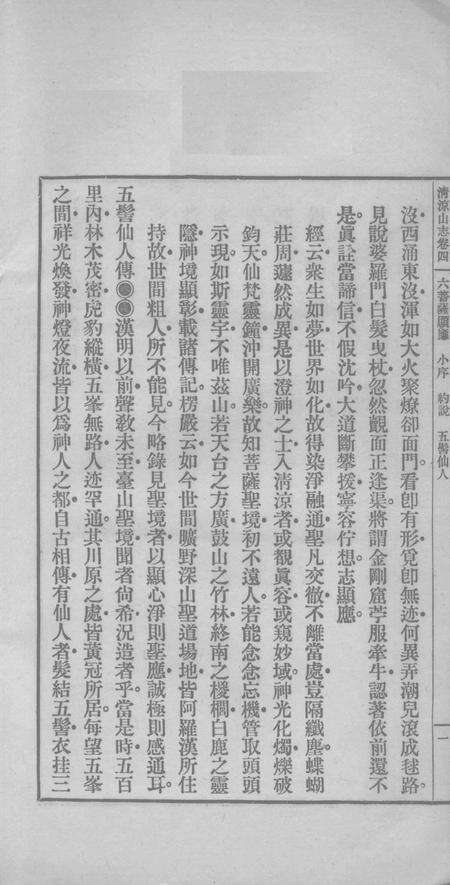 清涼山志卷四　六菩薩顯應　小序　約說　五髻仙人　一
沒西涌東沒渾如大火聚燎卻面門。看卽有形覓卽無迹何異弄潮兒滾成毬路。
見說婆羅門白髮曳杖忽然覿面正逢渠將謂金剛窟苧服牽牛認著依前還不
是。眞詮當諦信不假沈吟大道斷攀援寧容佇想志顯應。
經云衆生如夢世界如化故得染淨融通聖凡交徹不離當處豈隔纖塵蝶蝴
莊周蘧然成異是以澄神之士入清涼者或覩眞容或窺妙域神光化燭爍破
鈞天仙梵靈鐘沖開廣樂故知菩薩聖境初不遠人若能念念忘機管取頭頭
示現如斯靈宇不唯茲山若天台之方廣鼓山之竹林終南之椶櫚白鹿之靈
隱神境顯彰載諸傳記楞嚴云如今世間曠野深山聖道場地皆阿羅漢所住
持故世間粗人所不能見今略錄見聖境者以顯心淨則聖應誠極則感通耳。
五髻仙人傳●●漢明以前聲敎未至臺山聖境聞者尙希況造者乎當是時五百
里內林木茂密虎豹縱橫五峯無路人迹罕通其川原之處皆黃冠所居每望五峯
之間祥光煥發神燈夜流皆以爲神人之都自古相傳有仙人者髮結五髻衣挂三